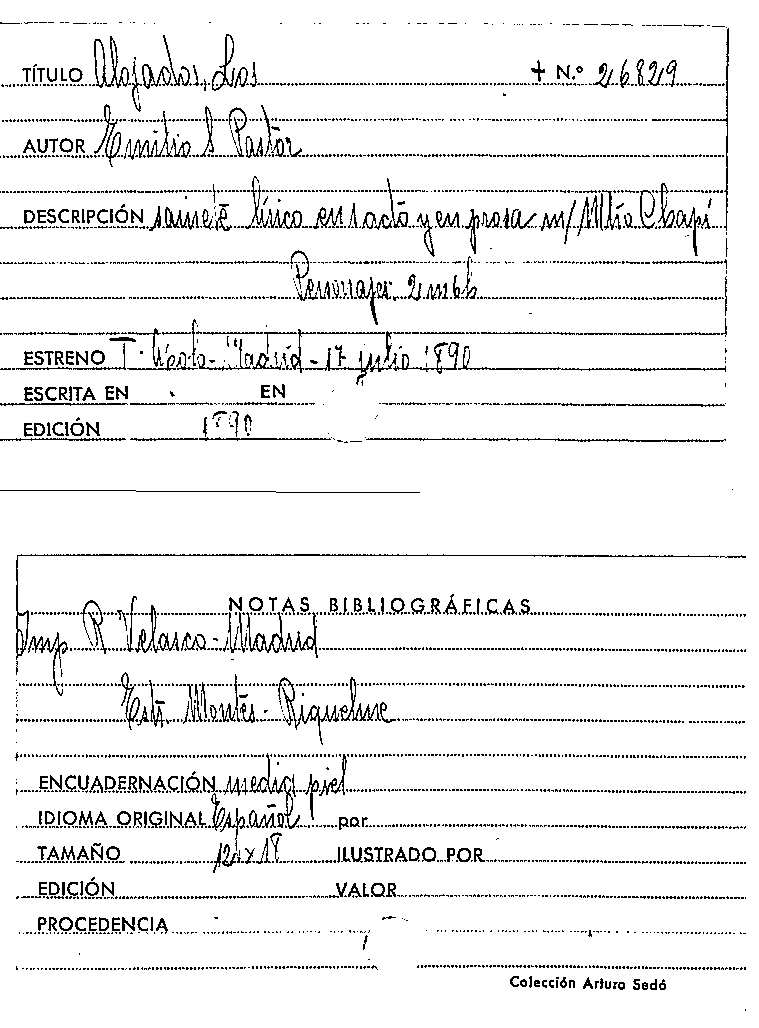 TÍTULO Alojados, Los + N.º 26829
AUTOR Emilio S Pastor
DESCRIPCIÓN sainete lírico en 1 acto y en prosa m/ Mtro Chapí
Personajes. 2 m 6 h
ESTRENO T. Apolo - Madrid - 17 julio 1890
ESCRITA EN EN
EDICIÓN 1890
NOTAS BIBLIOGRÁFICAS
Imp R Velasco - Madrid
Estr. Montes - Riquelme
ENCUADERNACIÓN media piel
IDIOMA ORIGINAL Español por
TAMAÑO 12 x 18 ILUSTRADO POR
EDICIÓN VALOR
PROCEDENCIA
Colección Arturo Sedó